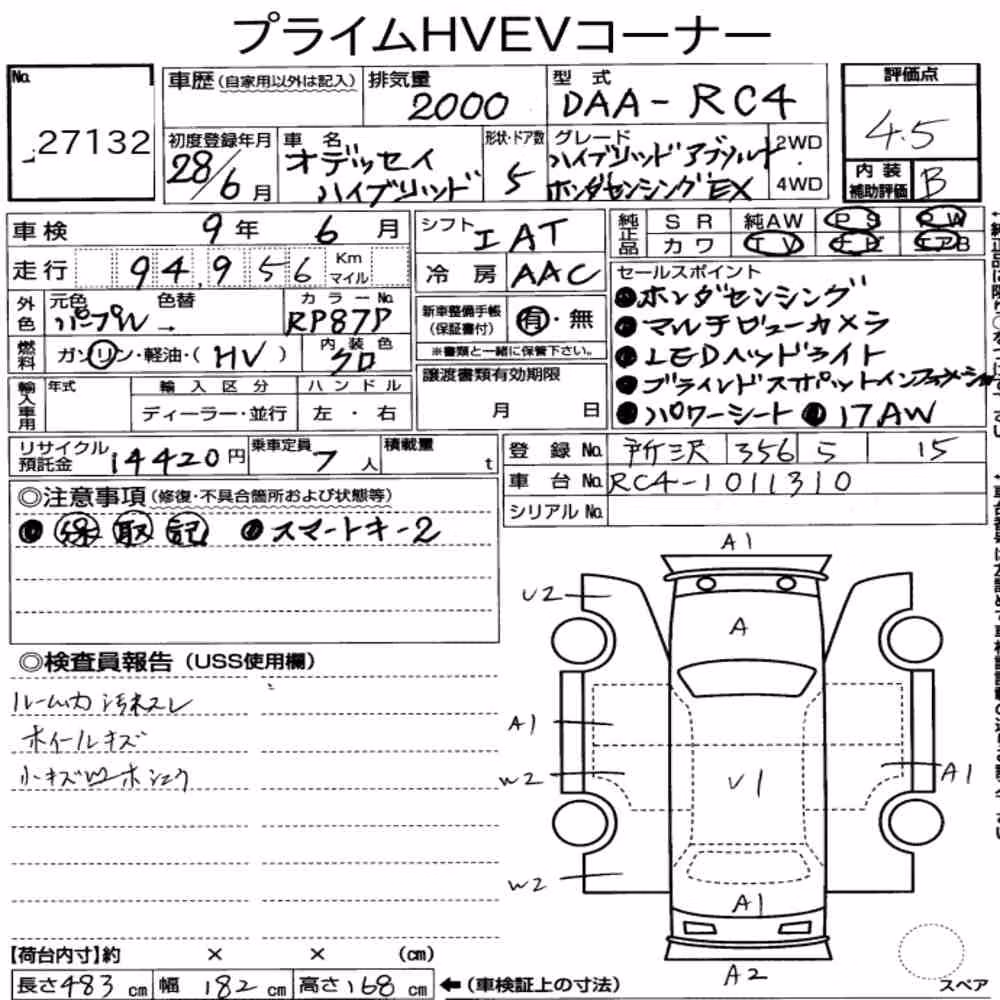 プライムHVEVコーナー
No. 27132
車歴（自家用以外は記入）
排気量 2000
型式 DAA-RC4
評価点 4.5
内装補助評価 B
初度登録年月 28/6月
車名 オデッセイ ハイブリッド
形状・ドア数 5
グレード ハイブリッド アブソルート
ホンダセンシング EX
2WD・4WD
車検 9年 6月
走行 94,956 Km マイル
外色 元色 パープル → 色替
カラーNo. RP87P
燃料 ガソリン・軽油・（HV）
内装色 クロ
輸入車用 年式 輸入区分 ディーラー・並行 ハンドル 左・右
シフト IAT
冷房 AAC
新車整備手帳（保証書付） 有・無
※書類と一緒に保管下さい。
譲渡書類有効期限 月 日
純正品 SR 純AW PS PW
カワ TV
セールスポイント
●ホンダセンシング
●マルチビューカメラ
●LEDヘッドライト
●ブラインドスポットインフォメーション
●パワーシート ●17AW
リサイクル預託金 14420円
乗車定員 7人
積載量 t
登録No. 所沢 356 5 15
車台No. RC4-1011310
シリアルNo.
◎注意事項（修復・不具合箇所および状態等）
●保 取 記 ●スマートキー2
◎検査員報告（USS使用欄）
ルーム内 汚れスレ
ホイールキズ
小キズ凹
A1
U2
A
A1
W2
U1
A1
W2
A1
A2
【荷台内寸】約 × × （cm）
長さ483cm 幅182cm 高さ168cm ←（車検証上の寸法）
スペア